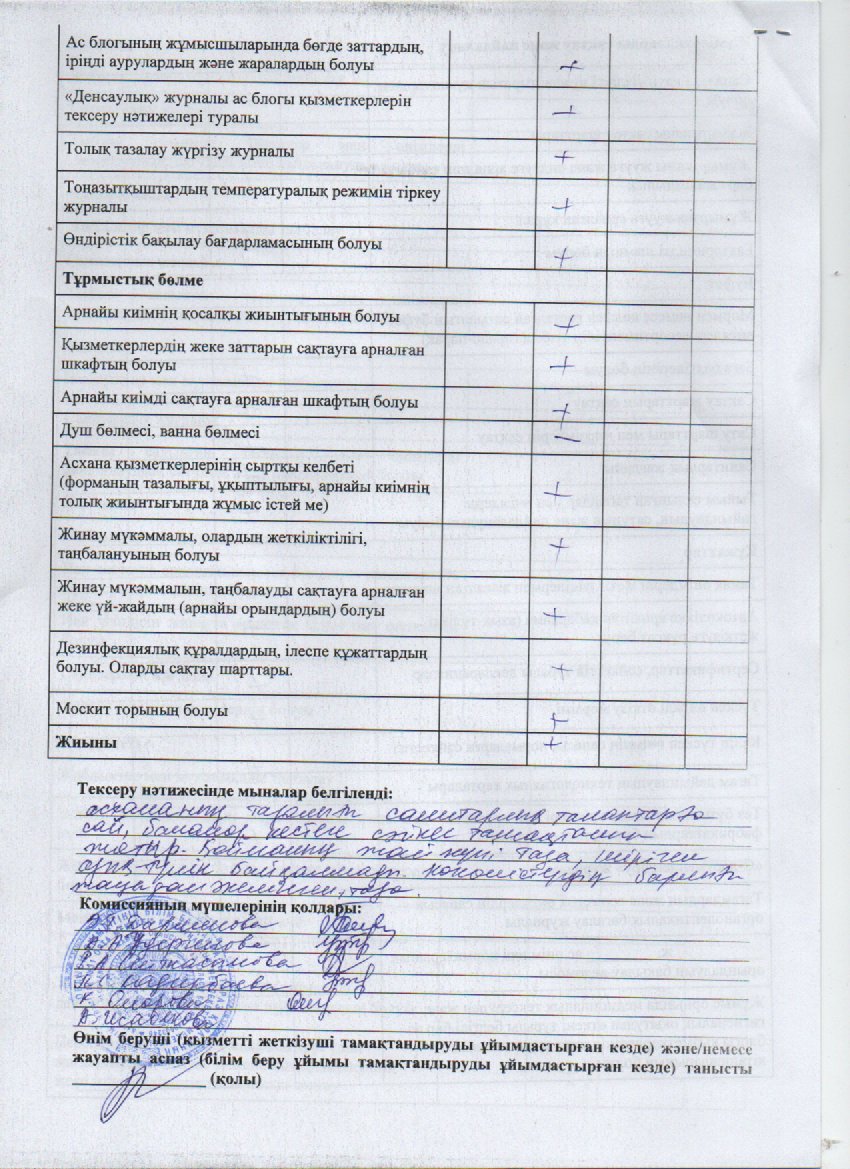 Ас блогының жұмысшыларында бөгде заттардың,
іріңді аурулардың және жаралардың болуы +
«Денсаулық» журналы ас блогы қызметкерлерін
тексеру нәтижелері туралы +
Толық тазалау жүргізу журналы +
Тоңазытқыштардың температуралық режимін тіркеу
журналы +
Өндірістік бақылау бағдарламасының болуы +
Тұрмыстық бөлме
Арнайы киімнің қосалқы жиынтығының болуы +
Қызметкерлердің жеке заттарын сақтауға арналған
шкафтың болуы +
Арнайы киімді сақтауға арналған шкафтың болуы +
Душ бөлмесі, ванна бөлмесі –
Асхана қызметкерлерінің сыртқы келбеті
(форманың тазалығы, ұқыптылығы, арнайы киімнің
толық жиынтығында жұмыс істей ме) +
Жинау мүкәммалы, олардың жеткіліктілігі,
таңбалануының болуы +
Жинау мүкәммалын, таңбалауды сақтауға арналған
жеке үй-жайдың (арнайы орындардың) болуы +
Дезинфекциялық құралдардың, ілеспе құжаттардың
болуы. Оларды сақтау шарттары. +
Москит торының болуы +
Жиыны +
Тексеру нәтижесінде мыналар белгіленді:
асхананың тазалығы санитарлық талаптарға
сай, балалар кестеге сәйкес тамақтанып
жатыр. Қойманың жай күйі таза, шіріген
байқалмады. көкөністердің барлығы
таза
Комиссияның мүшелерінің қолдары:
Өнім беруші (қызметті жеткізуші тамақтандыруды ұйымдастырған кезде) және/немесе
жауапты аспаз (білім беру ұйымы тамақтандыруды ұйымдастырған кезде) танысты
(қолы)